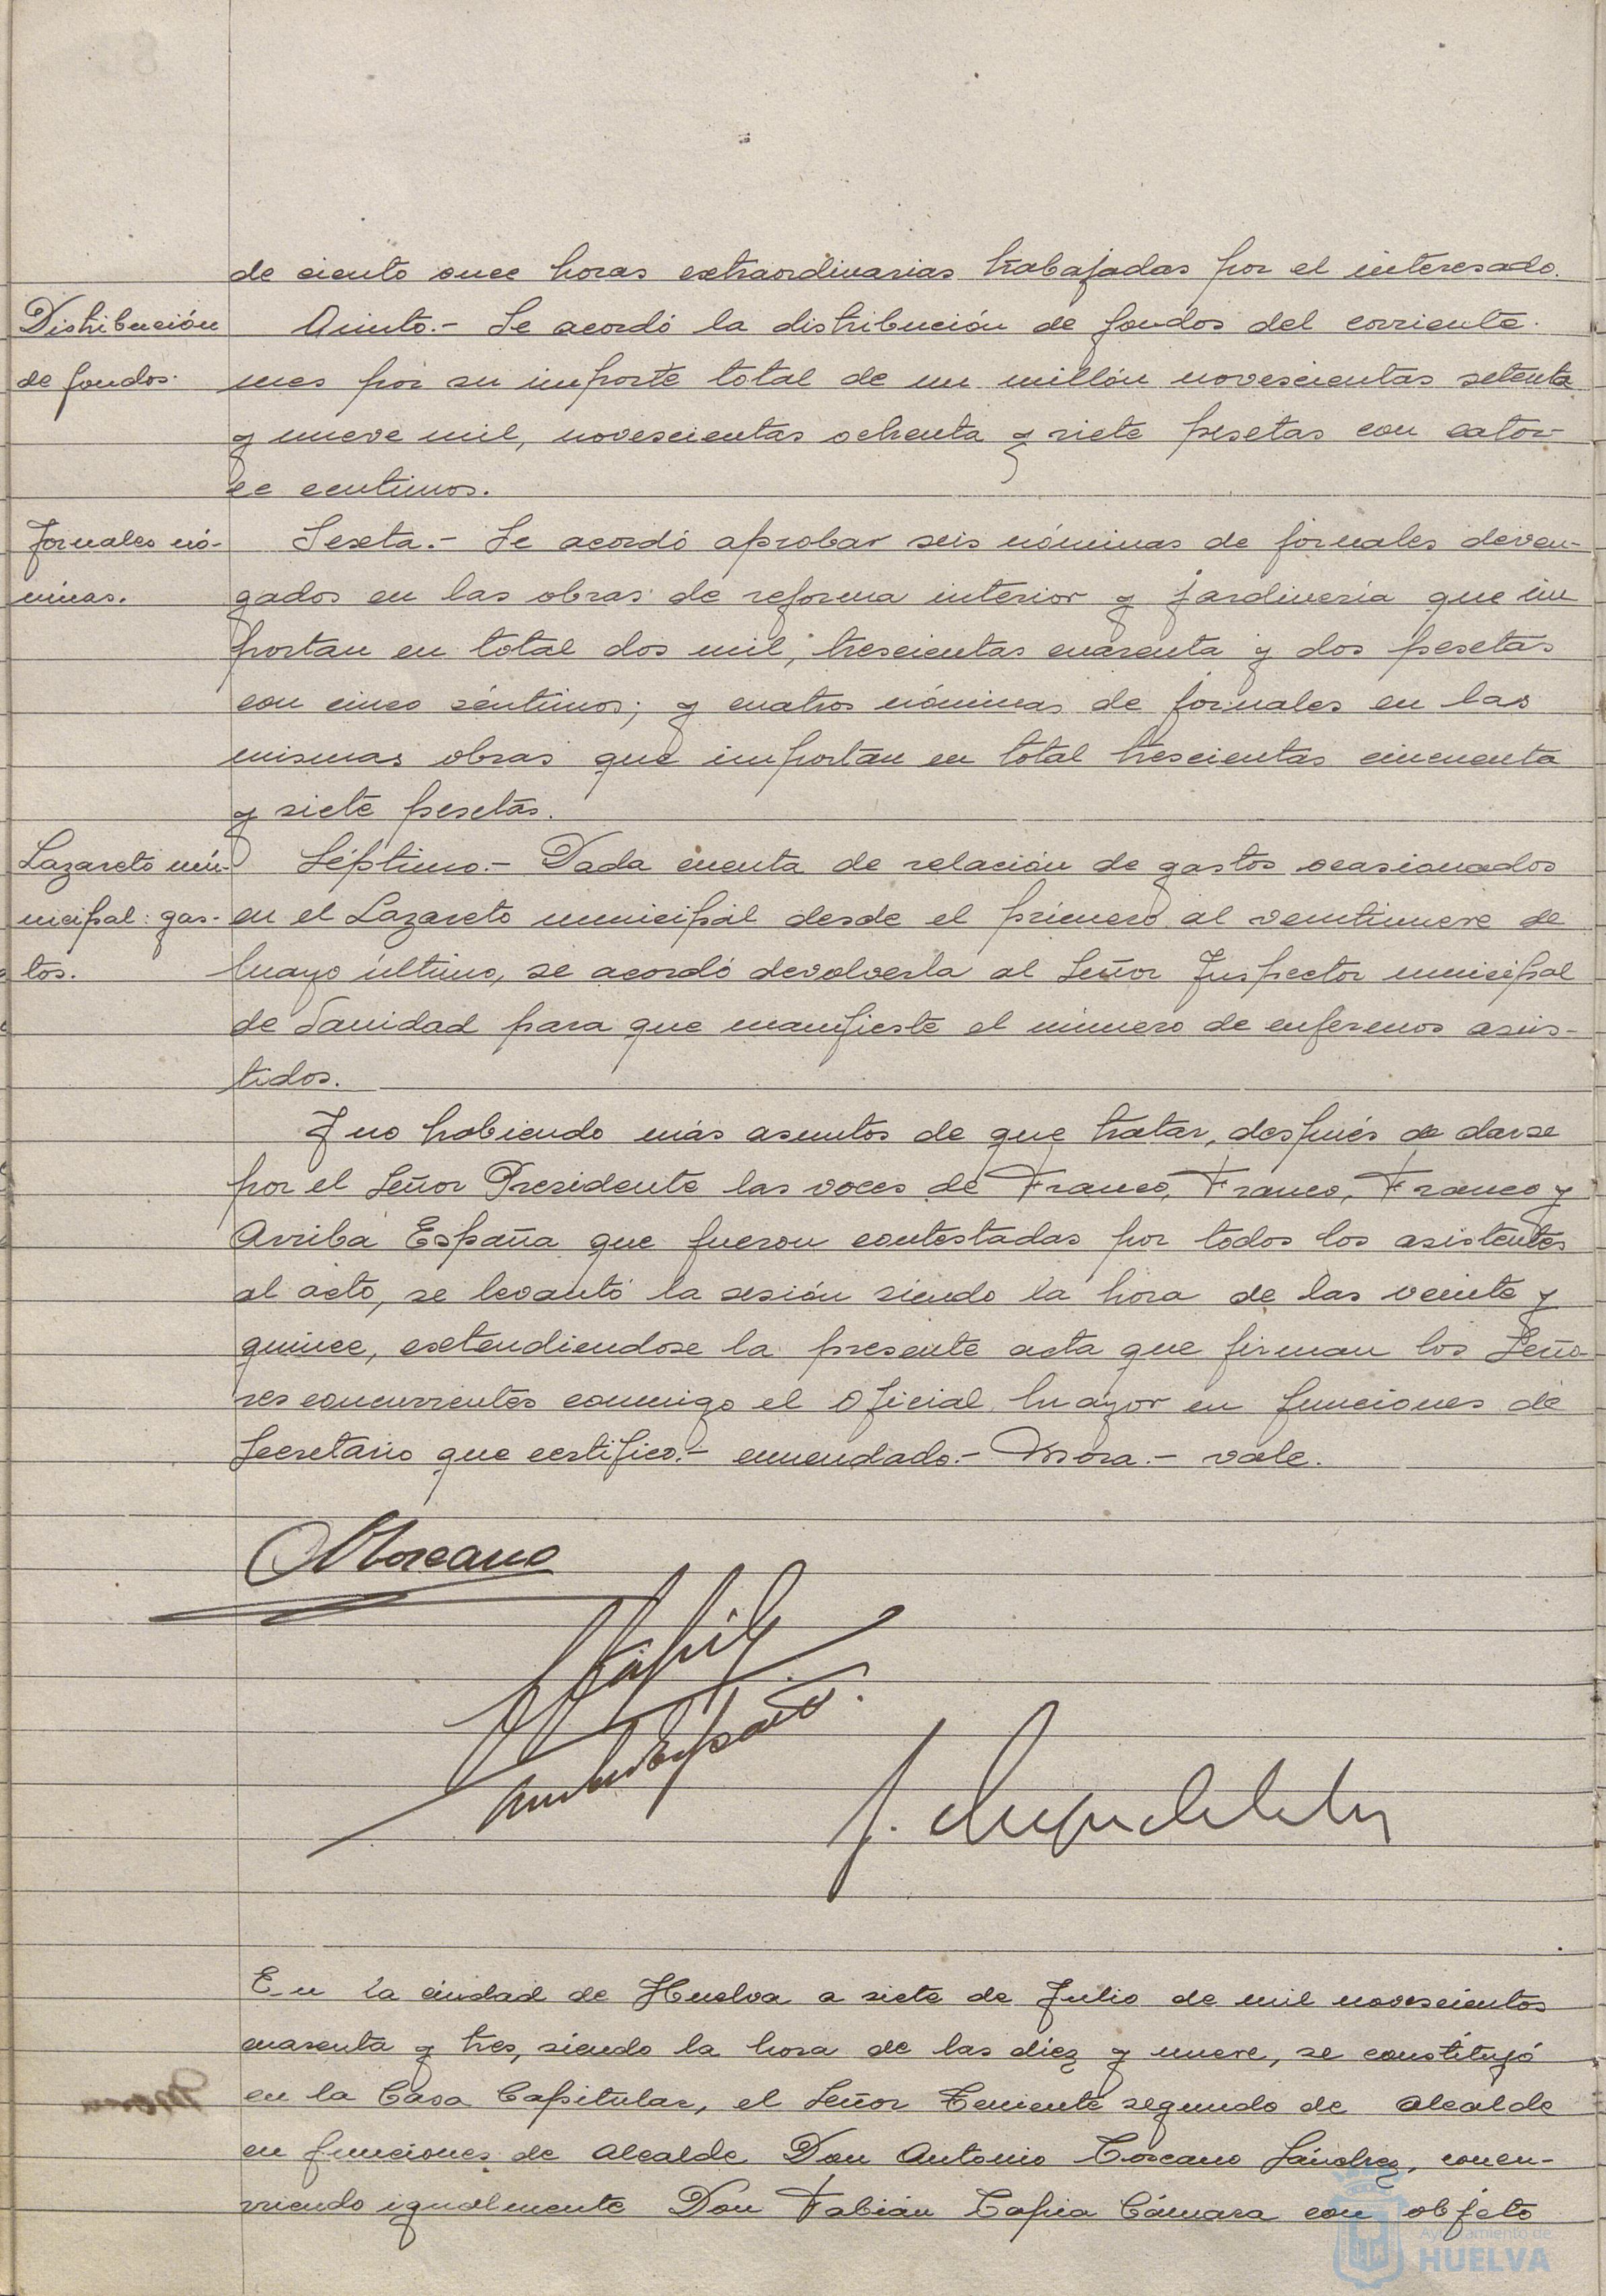 de ciento once horas extraordinarias trabajadas por el interesado.
Distribución
de fondos.
Quinto.- Se acordó la distribución de fondos del corriente
mes por su importe total de un millón novescientas setenta
y nueve mil, novescientas ochenta y siete pesetas con cator-
ce centimos.
Jornales nó-
minas.
Sexta.- Se acordó aprobar seis nóminas de jornales deven-
gados en las obras de reforma interior y jardinería que im
portan en total dos mil, trescientas cuarenta y dos pesetas
con cinco céntimos; y cuatros nóminas de jornales en las
mismas obras que importan en total trescientas cincuenta
y siete pesetas.
Lazareto mu-
nicipal: gas-
tos.
Séptimo.- Dada cuenta de relación de gastos ocasionados
en el Lazareto municipal desde el primero al ventinueve de
Mayo último, se acordó devolverla al Señor Inspector municipal
de Sanidad para que manifieste el número de enfermos asis-
tidos.
Y no habiendo más asuntos de que tratar, después de darse
por el Señor Presidente las voces de Franco, Franco, Franco y
Arriba España que fueron contestadas por todos los asistentes
al acto, se levantó la sesión siendo la hora de las veinte y
quince, extendiendose la presente acta que firman los Seño-
res concurrentes conmigo el Oficial Mayor en funciones de
Secretario que certifico.- enmendado.- Mora.- vale.
A Toscano
F Tapia
En la ciudad de Huelva a siete de Julio de mil novescientos
cuarenta y tres, siendo la hora de las diez y nueve, se constituyó
en la Casa Capitular, el Señor Teniente segundo de Alcalde
en funciones de Alcalde Don Antonio Toscano Sánchez, concu-
rriendo igualmente Don Fabián Tapia Cámara con objeto
Ayuntamiento de
HUELVA